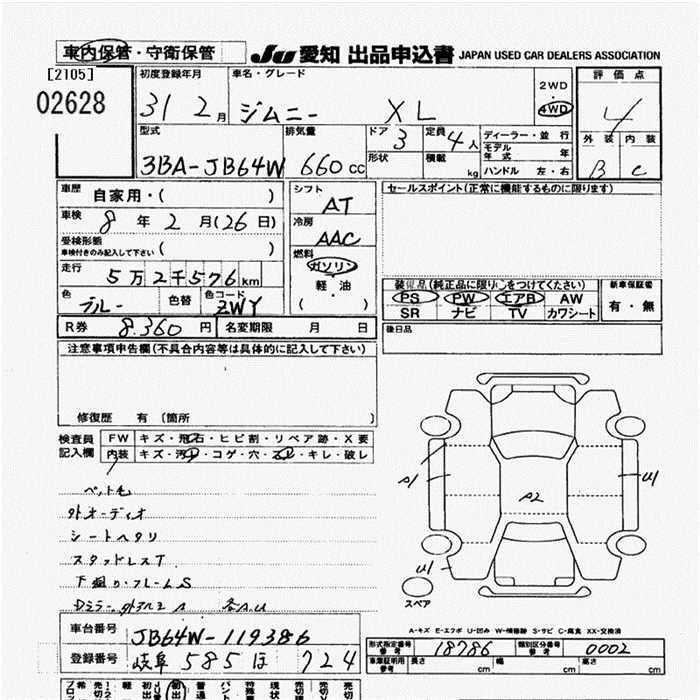 車内保管・守衛保管
JU 愛知 出品申込書 JAPAN USED CAR DEALERS ASSOCIATION
[2105]
02628
初度登録年月
31 2月
車名・グレード
ジムニー XL
2WD
4WD
評価点
4
外装 内装
B C
型式
3BA-JB64W
排気量
660cc
ドア
3
定員
4人
形状
積載
kg
ディーラー・並行
モデル年式 年
ハンドル 左・右
車歴
自家用・( )
車検
8年2月(26日)
受検形態
車検付きのみ記入して下さい ( )
走行
5万2千576km
色
ブルー
色替
色コード
ZWY
R券 8.360円
名変期限 月 日
シフト
AT
冷房
AAC
燃料
ガソリン
軽・油
( )
セールスポイント(正常に機能するものに限ります)
装備品(純正品に限り○をつけてください)
PS PW エアB AW
SR ナビ TV カワシート
新車保証書
有・無
後日品
注意事項申告欄(不具合内容等は具体的に記入して下さい)
修復歴 有 (箇所 )
検査員
記入欄
FW キズ・飛石・ヒビ割・リペア跡・X要
内装 キズ・汚れ・コゲ・穴・スレ・キレ・破レ
ペット毛
外オーディオ
シートヘタリ
スタッドレスT
下廻り・フレームS
A1
A2
U1
U1
スペア
A-キズ E-エクボ U-凹み W-補修跡 S-サビ C-腐食 XX-交換済
車台番号 JB64W-119386
登録番号 岐阜 585 ほ 724
形式指定番号 参考 18786
類別区分番号 参考 0002
車庫証明用 参考
長さ cm
幅 cm
高さ cm